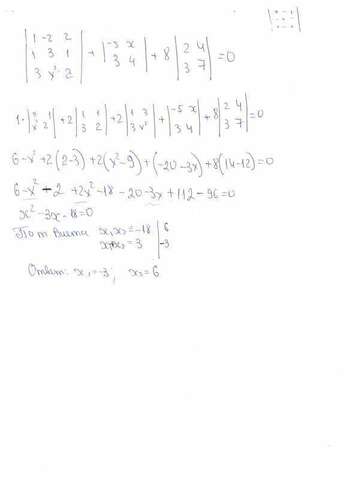 |1 -2 2; 1 3 1; 3 x² 2| + |-5 x; 3 4| + 8 |2 4; 3 7| = 0
1·|3 1; x² 2| + 2 |1 1; 3 2| + 2 |1 3; 3 x²| + |-5 x; 3 4| + 8 |2 4; 3 7| = 0
6-x² + 2(2-3) + 2(x²-9) + (-20-3x) + 8(14-12) = 0
6-x² - 2 + 2x² - 18 - 20 - 3x + 112 - 96 = 0
x² - 3x - 18 = 0
По т. Виета x₁x₂ = -18 | 6
x₁+x₂ = 3 | -3
Ответ: x₁ = -3; x₂ = 6